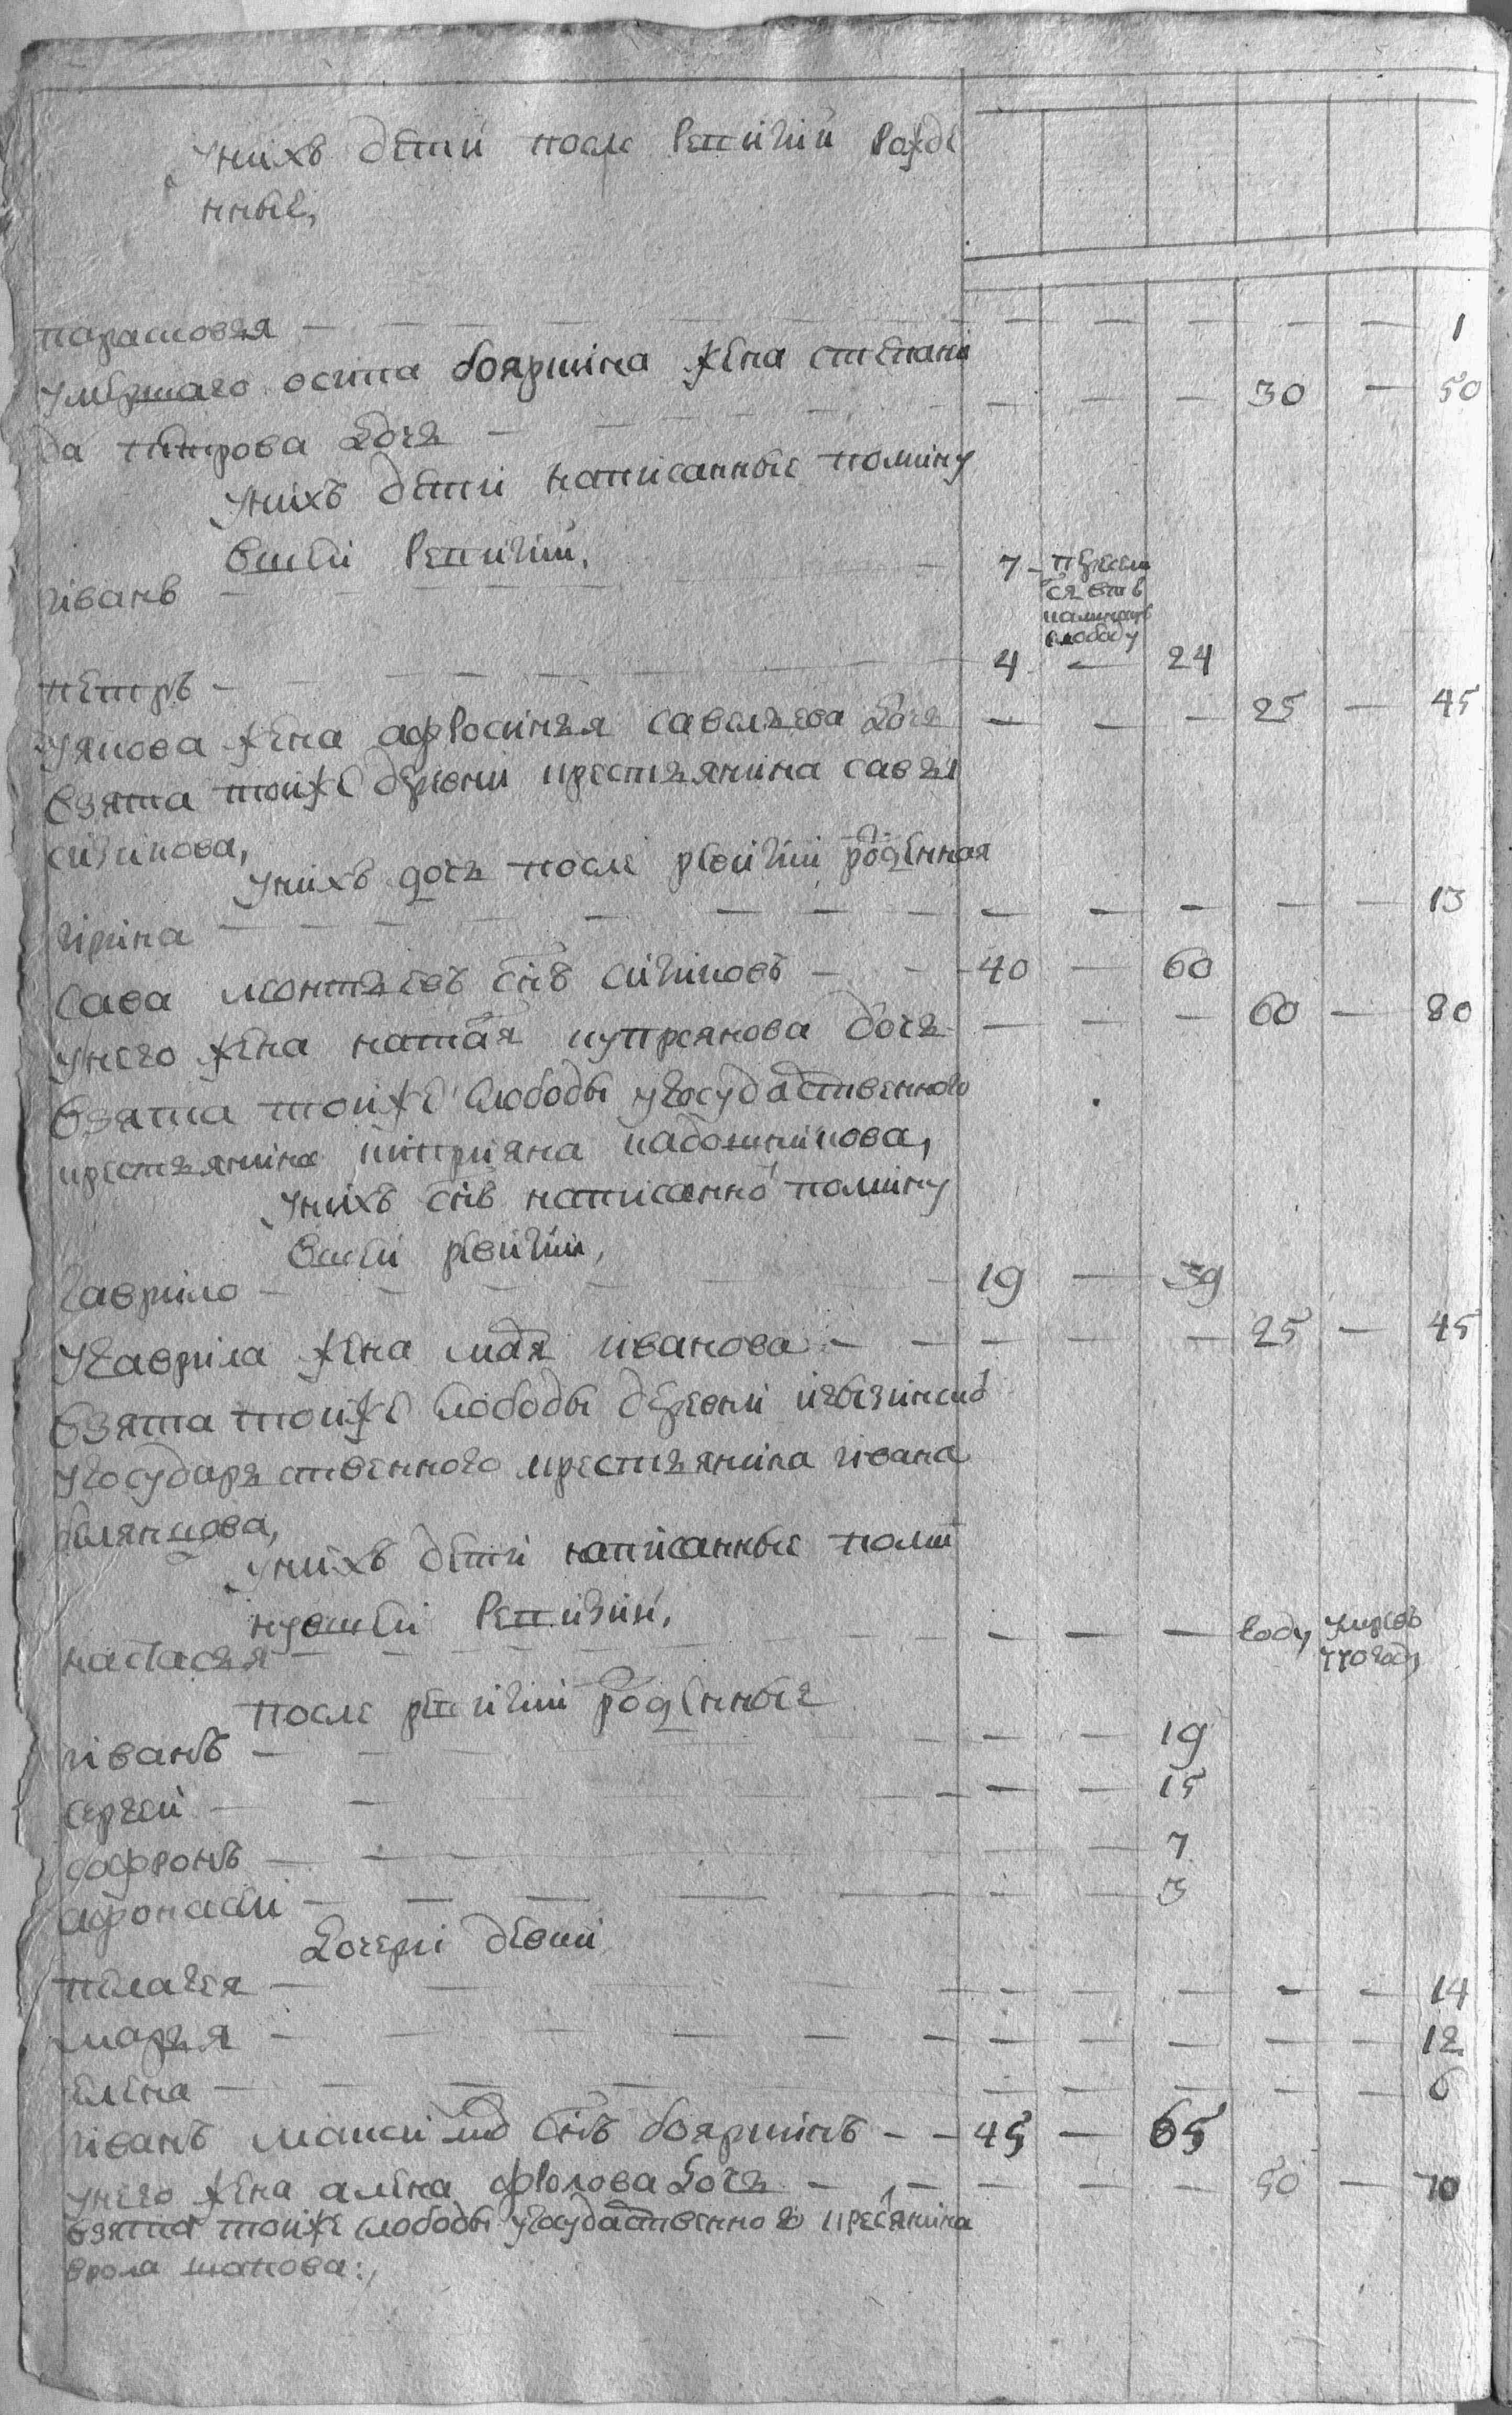 у нихъ дети после ревизии рожде
нные,
парасковья — — — — — — 1
умершаго осипа бояркина жена степани
да петрова дочь — — — 30 — 50
у нихъ дети написанные помину
вшей ревизии,
иванъ — 7 — пересе
ся въ
слободу
петръ — 4 — 24
жена афросинья савельева дочь — — — 25 — 45
взята тойже деревни крестьянина савы
у нихъ дочь после ревизии рожденная
ирина — — — — — — 13
сава леонтьевъ снъ — 40 — 60
у него жена наталья купреянова дочь — — — 60 — 80
взята тойже слободы у государственного
крестьянина
у нихъ снъ написанной помину
вшей ревизии,
гаврило — 19 — 39
у гаврила жена марья иванова — — — 25 — 45
взята тойже слободы деревни
у государственного крестьянина ивана
у нихъ дети написанные поми
нувшей ревизии,
настасья — — — — году
году
после ревизии рожденные
иванъ — — — 19
сергей — — — 15
софронъ — — 7
афонасей — — — 3
дочери девки
пелагея — — — — — — 14
марья — — — — — — 12
елена — — — — — — 6
иванъ снъ бояркинъ — 45 — 65
у него жена алена фролова дочь — — — 50 — 70
взята тойже слободы у государственного крестьянина
фрола